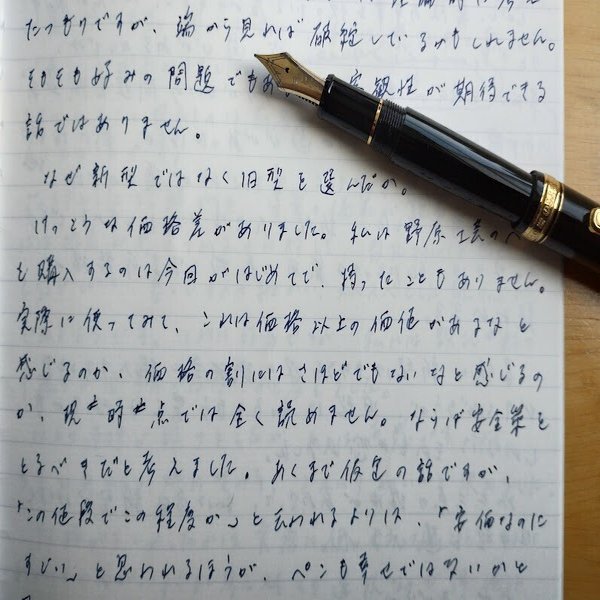 たっぷりですが、端から見れば破綻しているのかもしれません。
そもそも好みの問題でもあ 客観性が期待できる
話ではありません。
なぜ新型ではなく旧型を選んだか。
けっこうな価格差がありました。私は野原工芸の
を購入するのは今回がはじめてで、持ったこともありません。
実際に使ってみて、これは価格以上の価値があるなと
感じるのか、価格の割にはさほどでもないなと感じるの
か、現時点では全く読めません。ならば安全策を
とるべきだと考えました。あくまで仮定の話ですが、
「この値段でこの程度か」と云われるよりは、「安価なのに
すごい」と思われるほうが、ペンも幸せではないかと